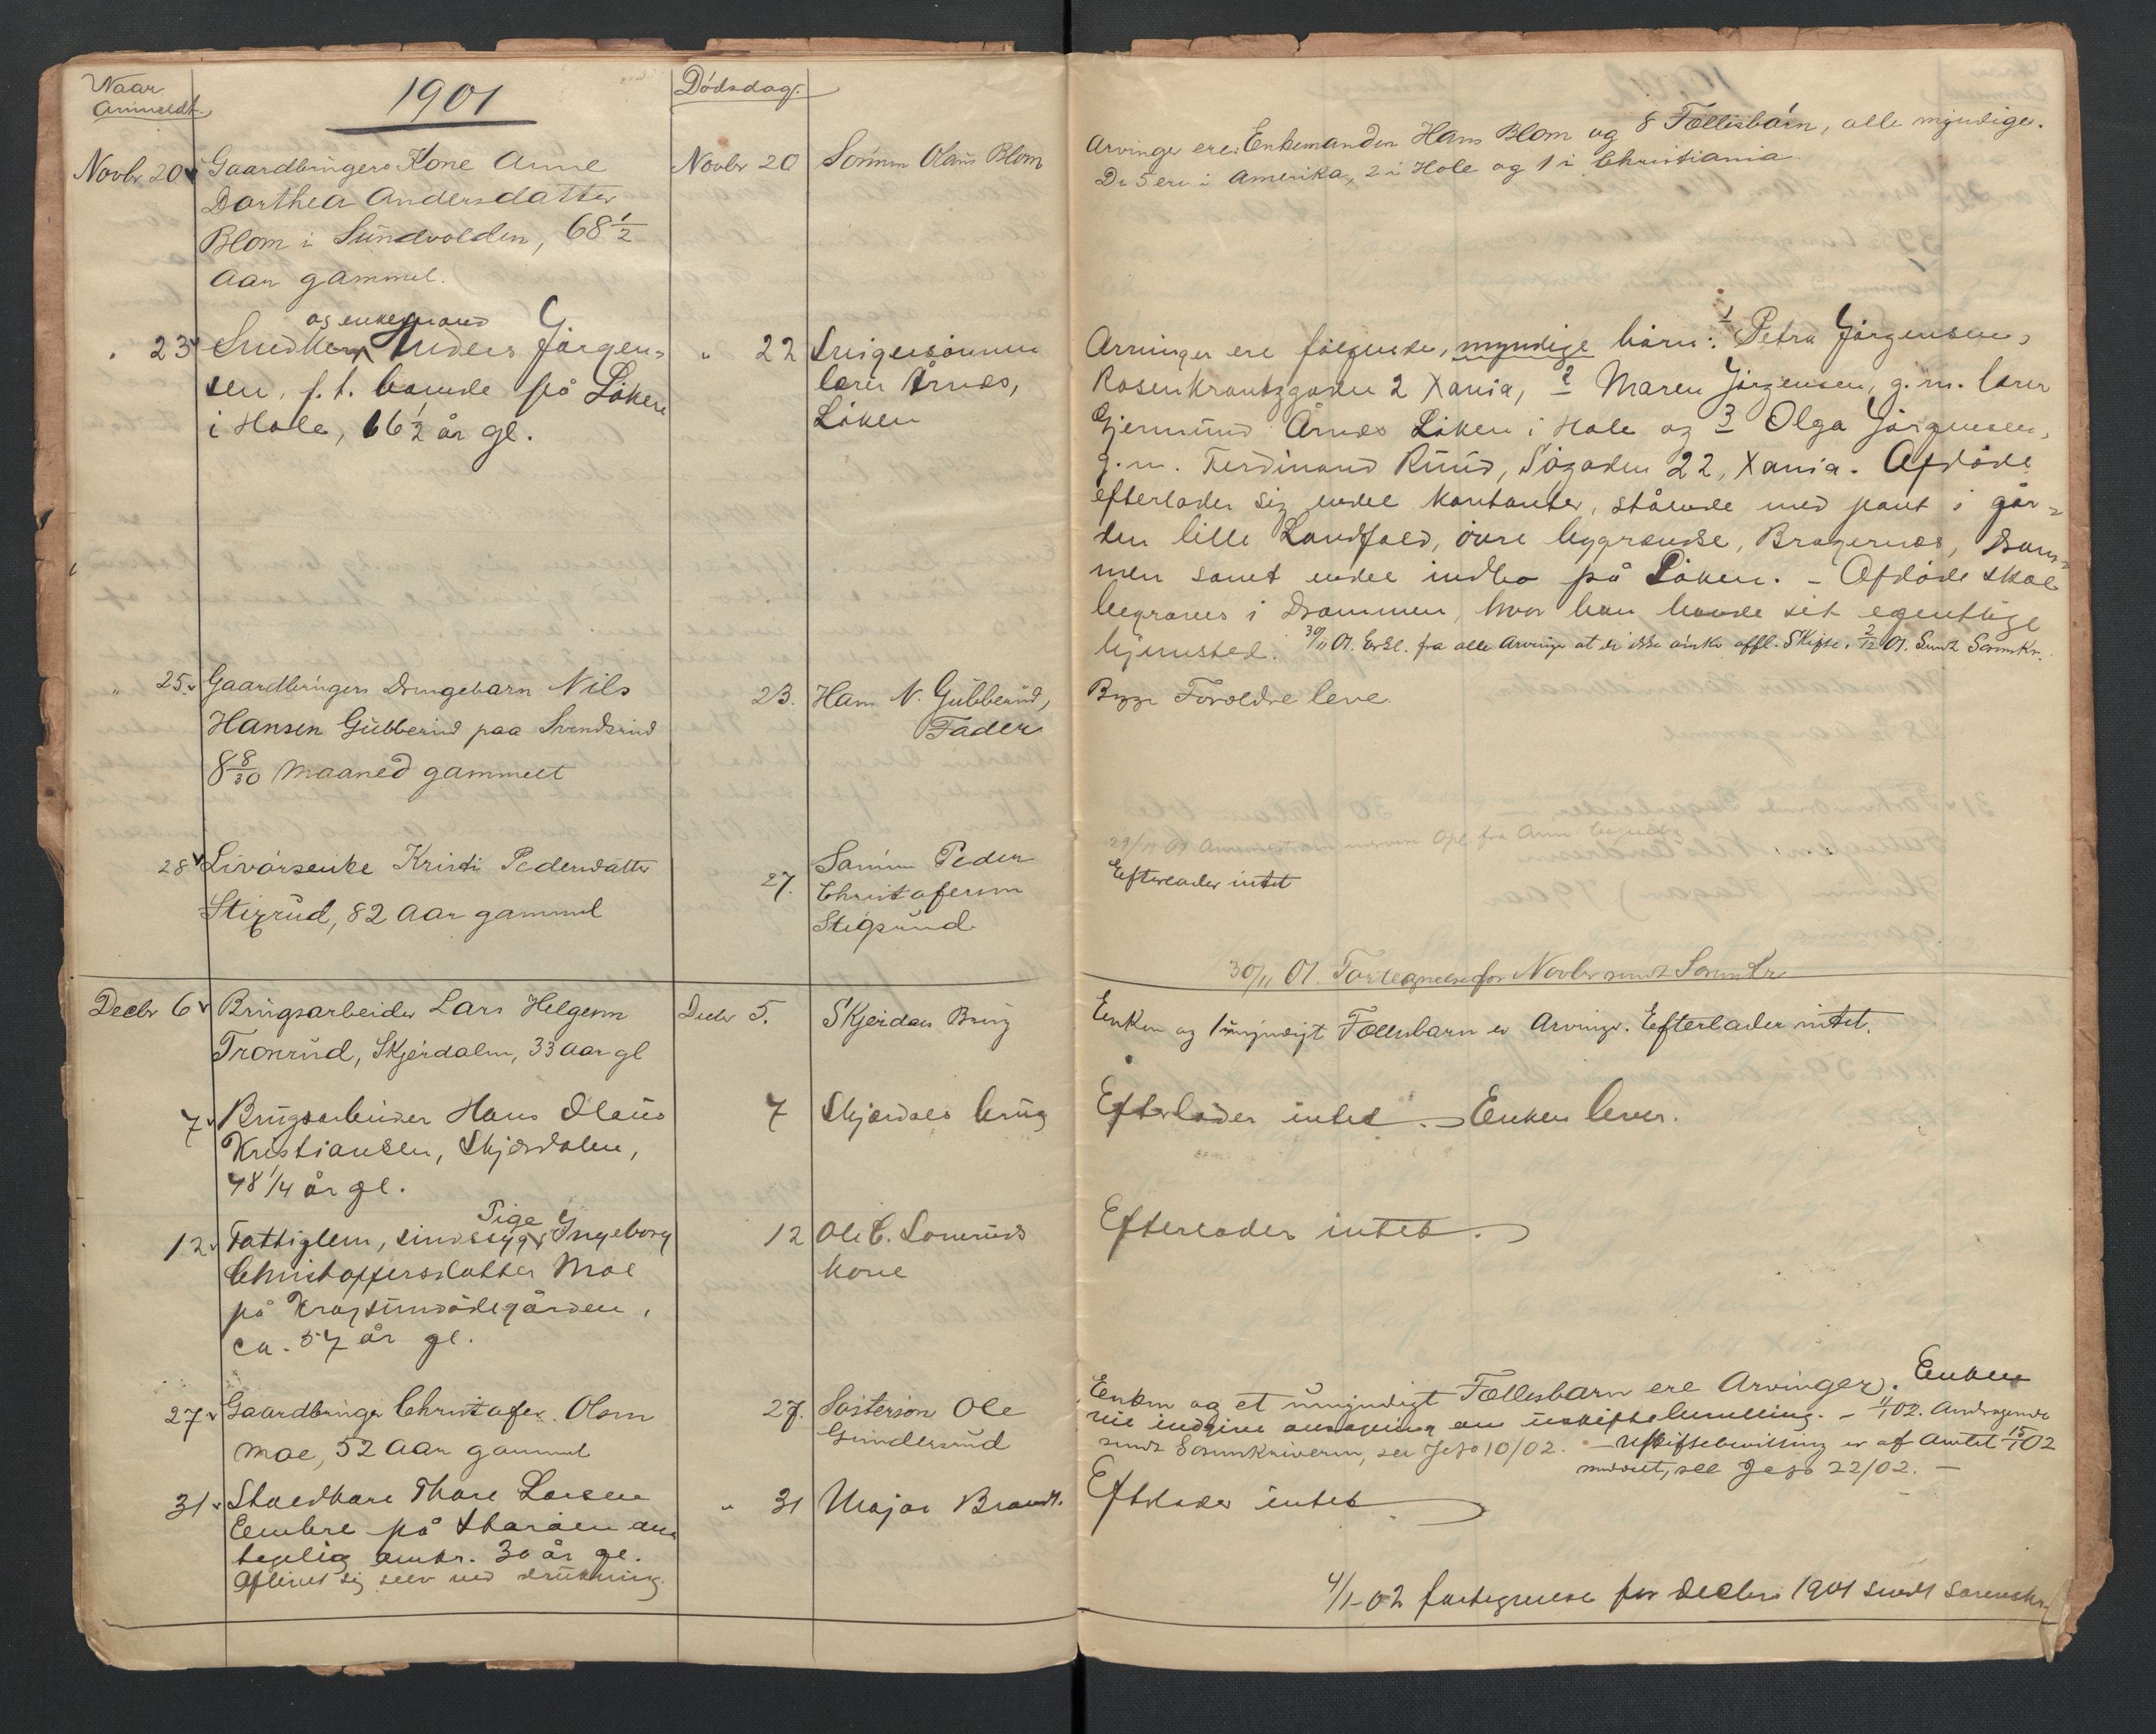 Naar
Anmeldt.
1901
Dödsdag.
Novbr 20 Gaardbrugers Kone Anne
Dorthea Andersdatter
Blom i Sundvolden, 68 1/2
Aar gammel.
Novbr 20 Sønnen Olaus Blom
Arvinger ere: Enkemanden Hans Blom og 8 Fællisbørn, alle myndige.
De 5 ere i Amerika, 2 i Hole og 1 i Christiania.
" 23 Snedker og enkemand Anders Jörgen-
sen, f. t. boende på Löken
i Hole, 66 1/2 år gl.
" 22 Svigersönnen
lærer Årnæs,
Löken
Arvinger ere fölgende, myndige börn: 1 Petra Jörgensen,
Rosenkrantzgaden 2 Xania, 2 Maren Jörgensen, g. m. lærer
Gjermund Årnæs Löken i Hole og 3 Olga Jörgensen,
g. m. Ferdinand Ruud, Søgaden 22, Xania. Afdöde
efterlader sig endel kontanter, stående med pant i går-
den lille Landfald, övre bygrændse, Bragernæs, Dram-
men samt endel indbo på Löken. - Afdöde skal
begraves i Drammen, hvor han havde sit egentlige
hjemsted. 30/11 01. Erkl. fra alle Arvinger at de ikke ønske offl. Skifte. 2/12 01. Sendt Sorenskr.
" 25 Gaardbrugers Drengebarn Nils
Hansen Gubberud paa Svendsrud
8 8/30 Maaned gammelt
23. Hans N. Gubberud,
Fader
Begge Forældre leve.
28 Livørsenke Kristi Pedersdatter
Stixrud, 82 Aar gammel
27. Sønnen Peder
Christofersen
Stigsrud
29/11 01
Efterlader intet
30/11 01. Fortegnelse for Novbr sendt Sorenskr
Decbr 6 Brugsarbeider Lars Helgesen
Tronrud, Skjerdalen, 33 Aar gl
Decbr 5. Skjerdals Brug
Enken og 1 umyndigt Fællesbarn er Arvinger. Efterlader intet.
7 Brugsarbeider Hans Olaus
Kristiansen, Skjærdalen,
48 1/4 år gl.
7 Skjærdals brug
Efterlader intet. Enken lever.
12 Fattiglem, sindssyg Pige Ingeborg
Christoffersdatter Moe
på Krogsundödegården,
ca. 57 år gl.
12 Ole C. Lomruds
kone
Efterlader intet.
27 Gaardbruger Christofer Olsen
Moe, 52 Aar gammel
27. Søstersøn Ole
Gundersrud
Enken og et umyndigt Fællesbarn ere Arvinger. Enken
vil indgive ansøgning om uskiftebevilling. - /1 02. Andragende
sendt Sorenskriveren, see Jrjo 10/02. - Uskiftebevilling er af Amtet 15/1 02
meddelt, see Jrjo 22/02. -
31 Stuedkare Thore Larsen
på Storöen an-
tagelig omtr. 30 år gl.
Aflivet sig selv ved drukning.
" 31 Major Brandt.
Efterlader intet
4/1-02 fortegnelse for decbr 1901 sendt sorenskr.